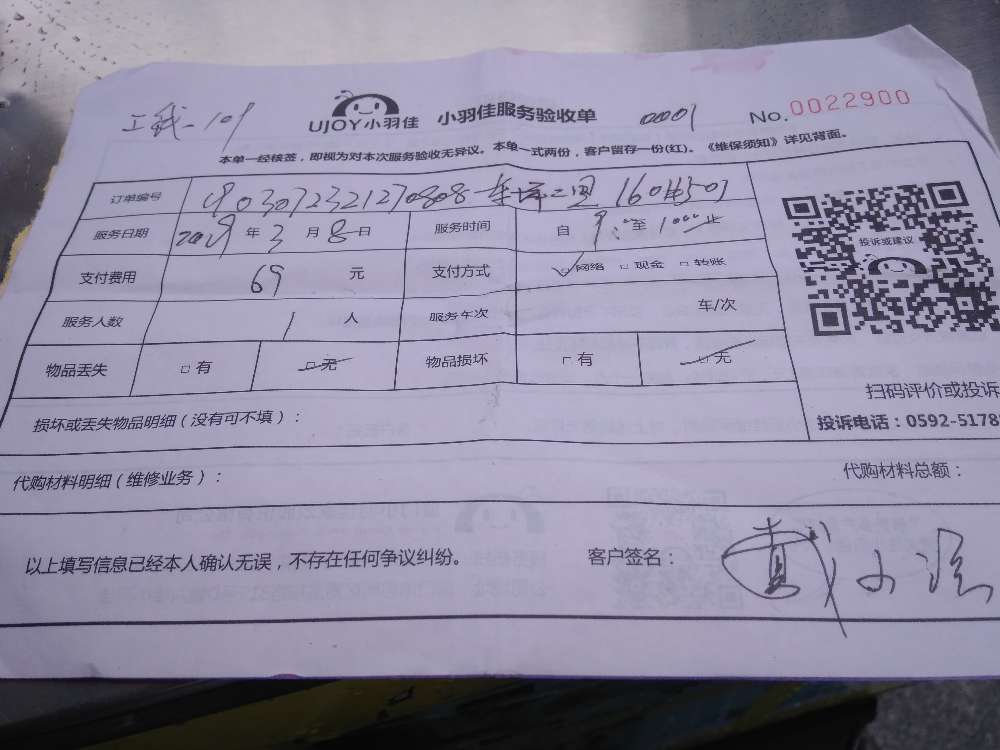 UJOY小羽佳 小羽佳服务验收单 0001 No.0022900
本单一经核签，即视为对本次服务验收无异议。本单一式两份，客户留存一份(红)。《维保须知》详见背面。
订单编号
服务日期 2019 年 3 月 8 日 服务时间 自 9:00 至 10:00 止
投诉或建议
支付费用 69 元 支付方式 网络 □ 现金 □ 转账
服务人数 1 人 服务车次 车/次
物品丢失 □ 有 □ 无 物品损坏 □ 有 □ 无
扫码评价或投诉
损坏或丢失物品明细（没有可不填）： 投诉电话：0592-5178
代购材料明细（维修业务）： 代购材料总额：
以上填写信息已经本人确认无误，不存在任何争议纠纷。 客户签名：